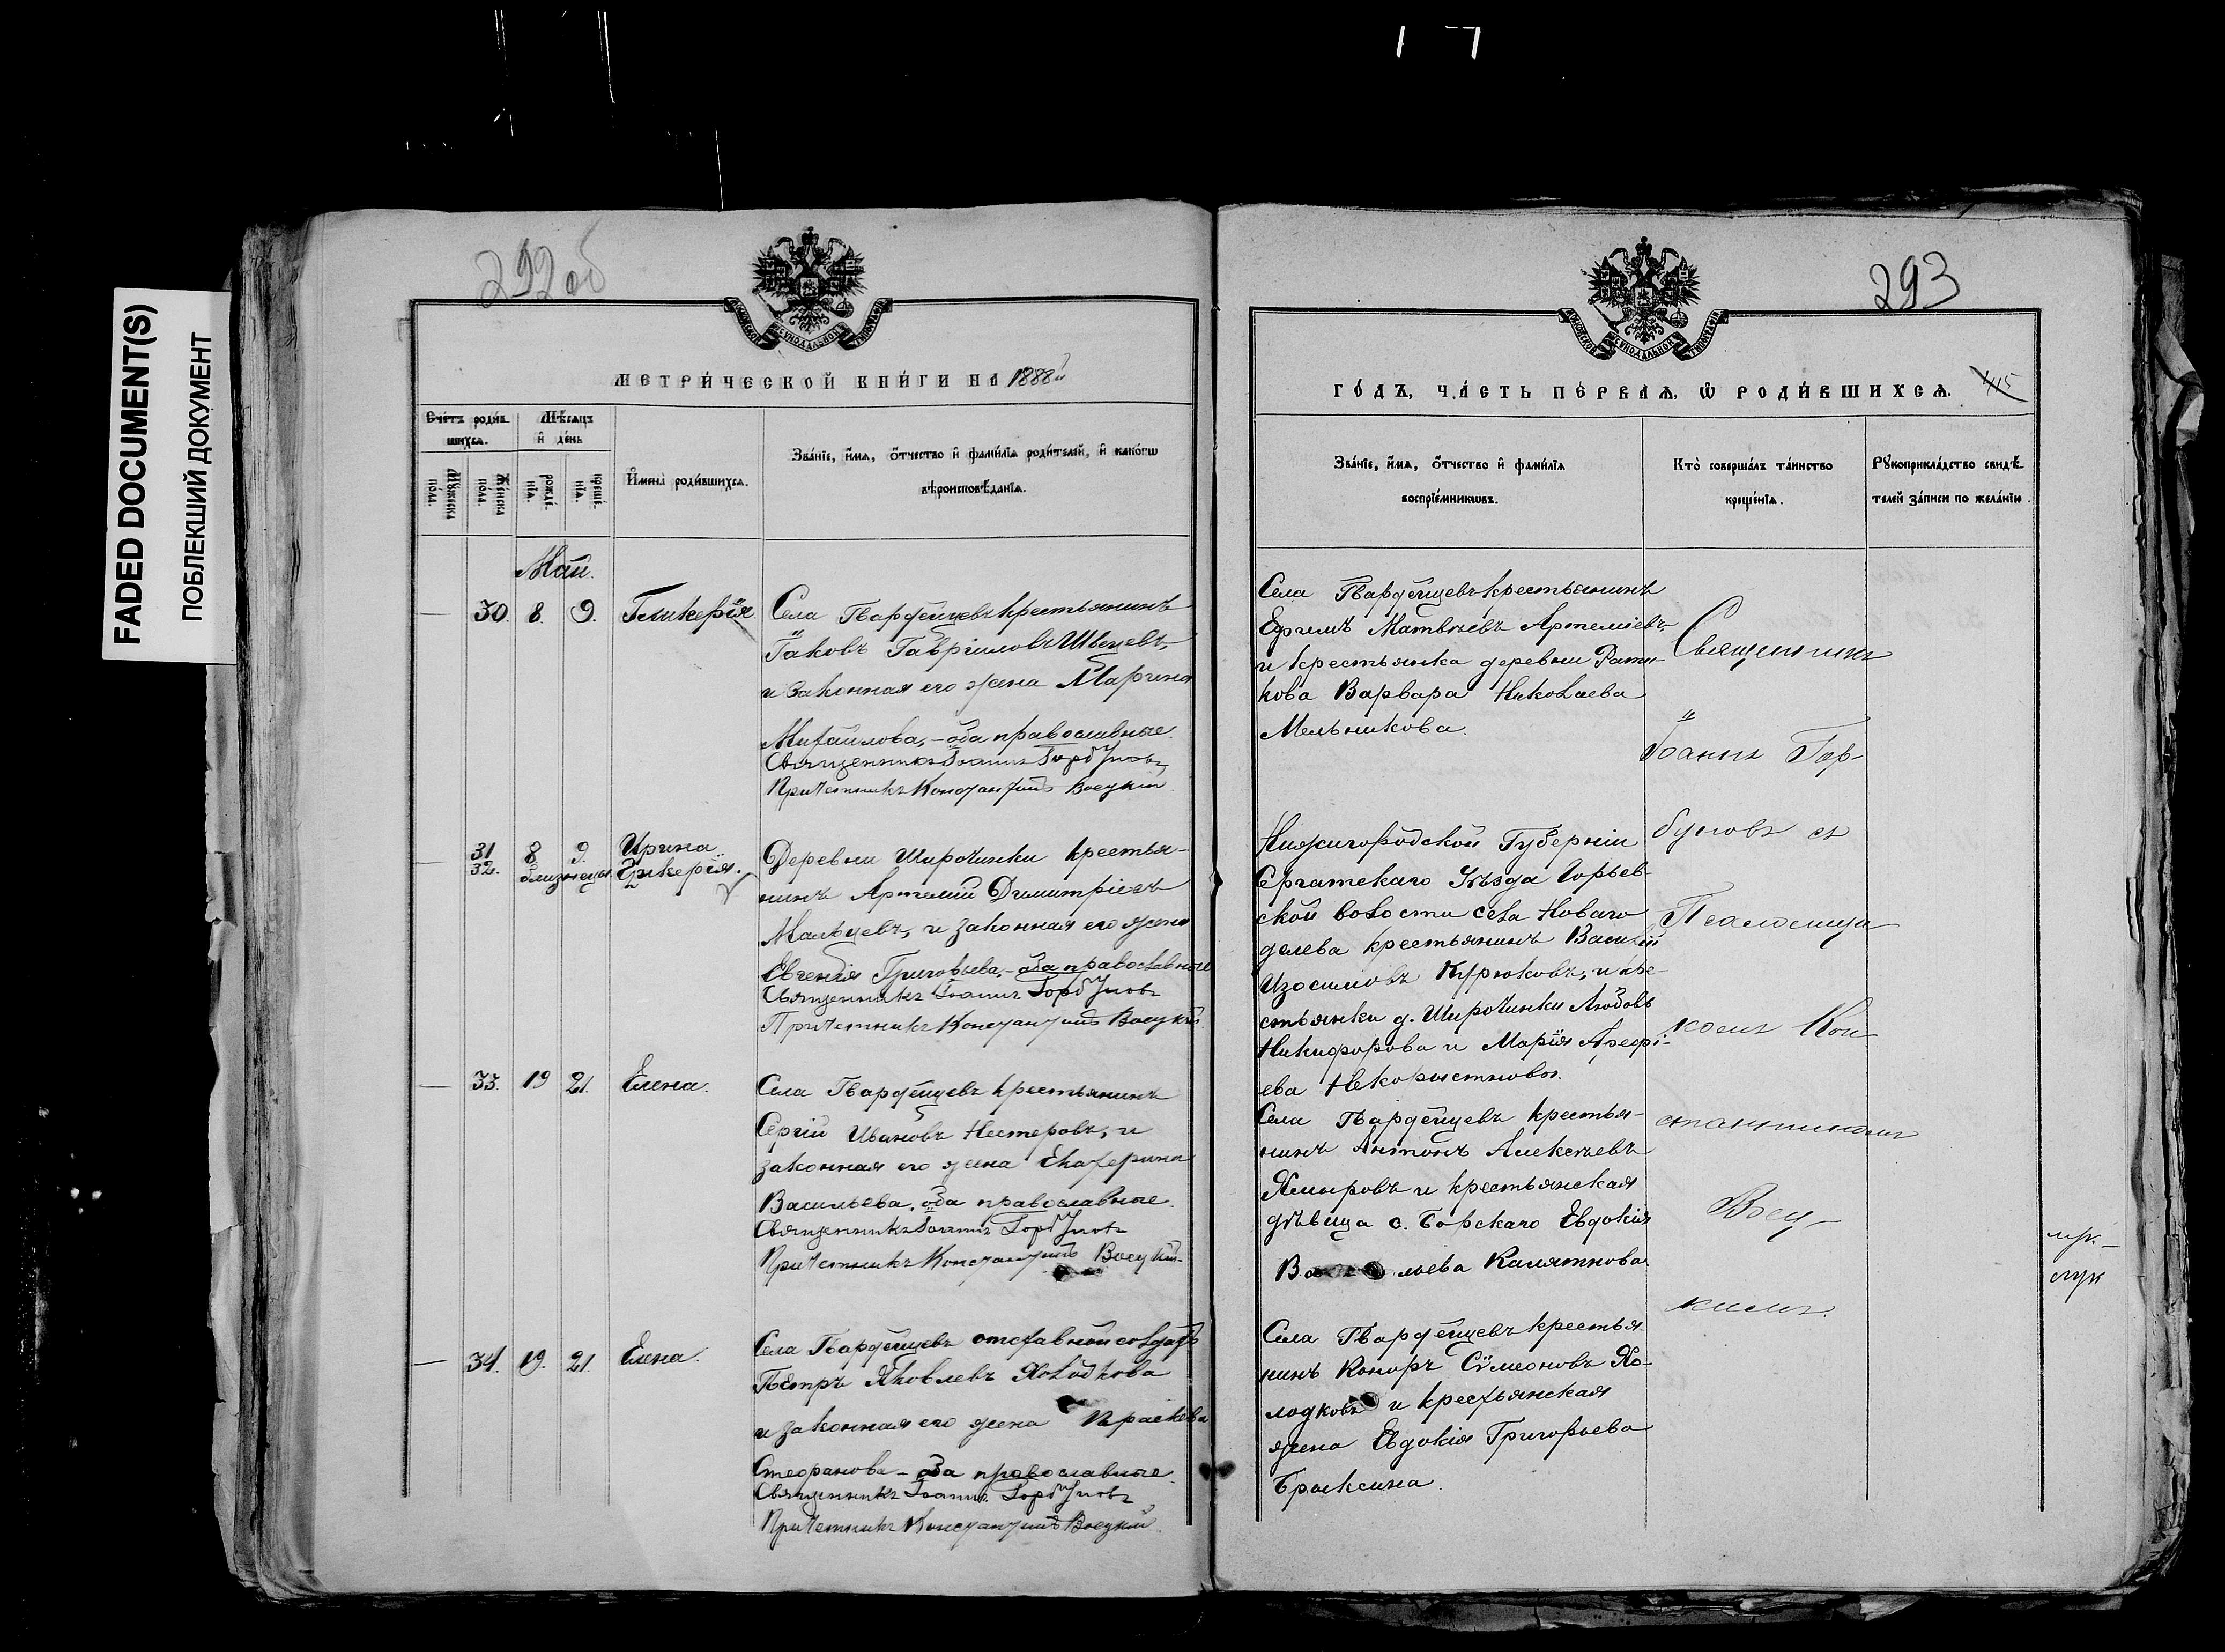 FADED DOCUMENT(S)
ПОБЛЕКШИЙ ДОКУМЕНТ
292об
МЕТРИ́ЧЕСКОЙ КНИ́ГИ НА 1888й
Сче́тъ роди́в-
шихсѧ.
Мѣ́сѧцъ
и҆ де́нь
Мꙋ́жеска
по́ла.
Же́нска
по́ла.
рожде́-
нїѧ.
креще́-
нїѧ.
И҆мена̀ роди́вшихсѧ.
Зва́нїе, и҆́мѧ, о҆́тчество и҆ фами́лїѧ роди́телей, и҆ како́гѡ
вѣроисповѣ́данїѧ.
Май.
— 30. 8. 9. Гликерія
Села Гвардейцевъ крестьянинъ
Іаковъ Гавріиловъ Швецевъ,
и законная его жена Марина
Михайлова, – оба православные.
Священникъ Іоаннъ Горбуновъ
Причетникъ Константинъ Воецкій
— 31 8 9. Ирина
32. близнецы Гликерія.
Деревни Широчинки крестья-
нинъ Артемій Димитріевъ
Мальцевъ, и законная его жена
Евгенія Григорьева, – оба православные
Священникъ Іоаннъ Горбуновъ
Причетникъ Константинъ Воецкій
— 33. 19 21. Елена.
Села Гвардейцевъ крестьянинъ
Сергій Ивановъ Нестеровъ, и
законная его жена Екатерина
Васильева, оба православные.
Священникъ Іоаннъ Горбуновъ
Причетникъ Константинъ Воецкій
— 34. 19. 21. Елена.
Села Гвардейцевъ отставной солдатъ
Петръ Яковлевъ Холодкова
и законная его жена Праскева
Стефанова – оба православные.
Священникъ Іоаннъ Горбуновъ
Причетникъ Константинъ Воецкій.
293
ГО́ДЪ, ЧА́СТЬ ПЕ́РВАѦ, Ѡ҆ РОДИ́ВШИХСѦ.
415
Зва́нїе, и҆́мѧ, о҆́тчество и҆ фами́лїѧ
воспрїе́мникѡвъ.
Кто̀ соверша́лъ та́инство
креще́нїѧ.
Рꙋкоприкла́дство свидѣ́-
телей за́писи по жела́нїю.
Села Гвардейцевъ крестьянинъ
Ефимъ Матвѣевъ Артеміевъ,
и крестьянка деревни Рати-
кова Варвара Николаева
Мельникова.
Нижигородской Губерніи
Сергатскаго Уѣзда Юрьев-
ской волости села Новаго
делева крестьянинъ Василій
Изосимовъ Курюковъ, и кре-
стьянки д. Широчинки Любовь
Никифорова и Марія Арефі-
ева Некорыстновы.
Села Гвардейцевъ крестья-
нинъ Антонъ Алексѣевъ
Жмыровъ и крестьянская
дѣвица с. Борскаго Евдокія
Ва льева Калятнова
Села Гвардейцевъ крестья-
нинъ Кононъ Сѷмеоновъ Хо-
лодковъ и крестьянская
жена Евдокія Григорьева
Браксина.
Священникъ
Іоаннъ Гор-
буновъ съ
Псаломщи
комъ Кон-
стантиномъ
Воец-
кимъ.